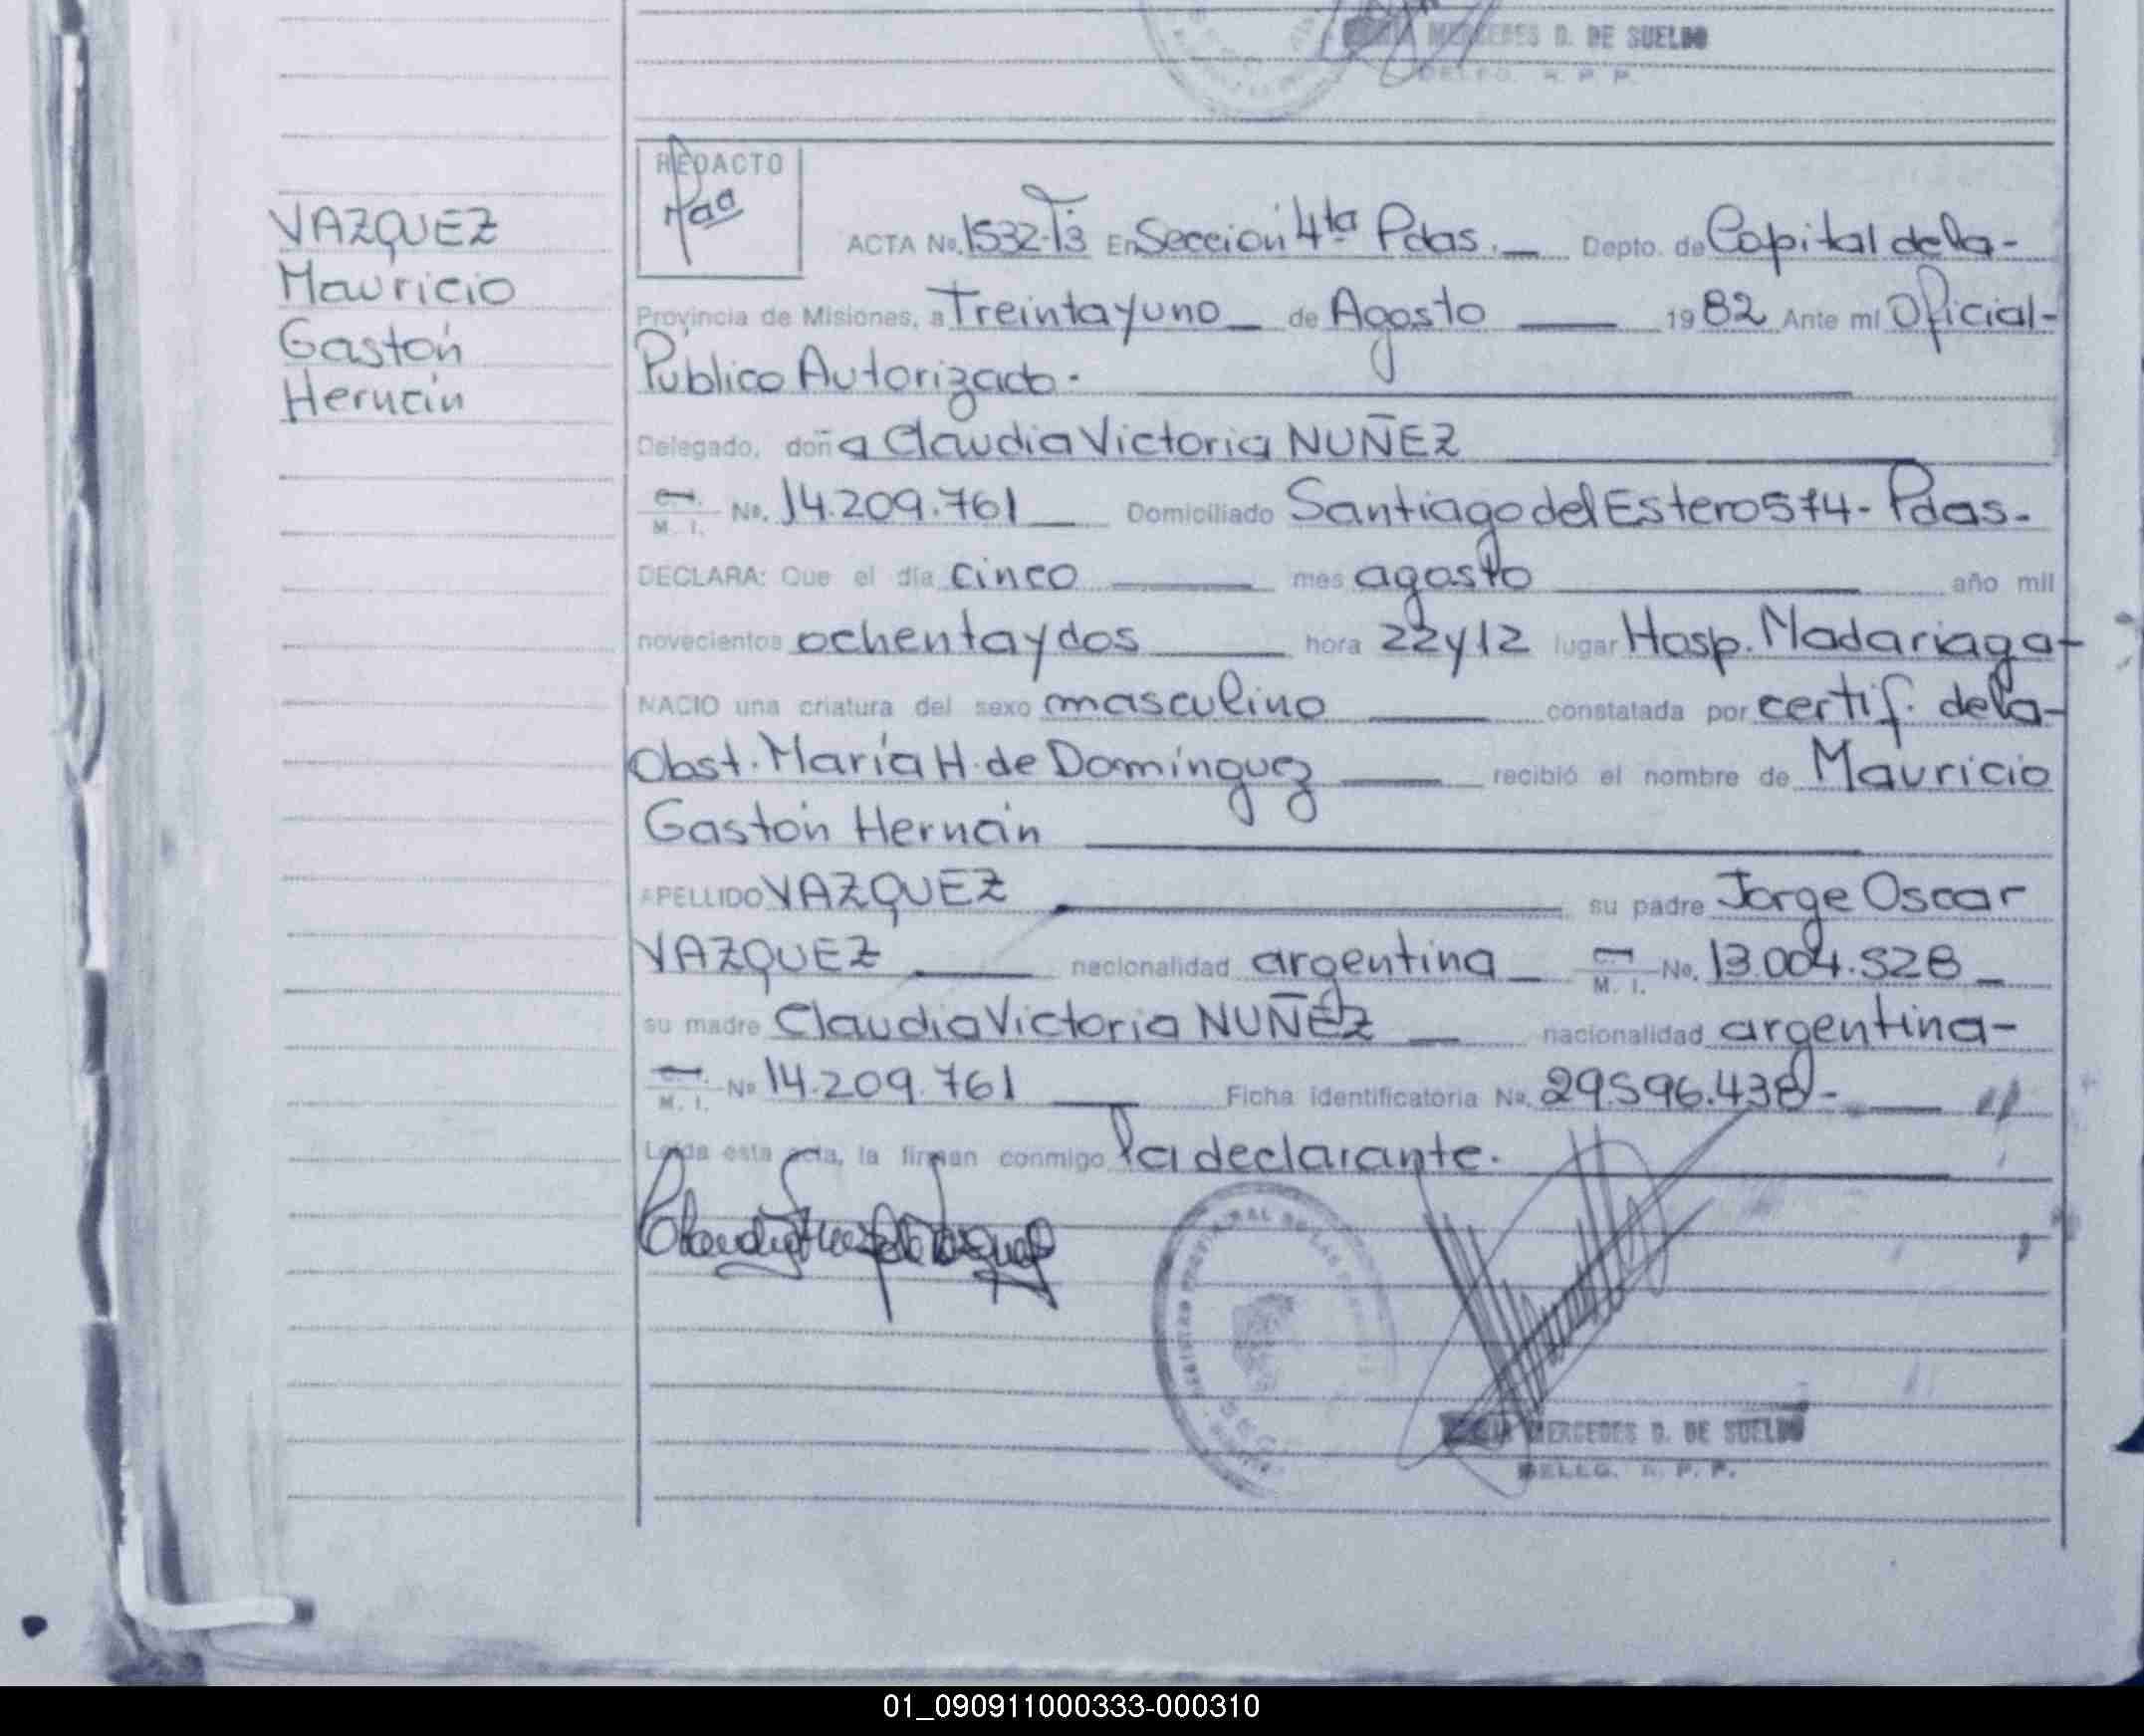 MERCEDES D. DE SUELDO
DELEG. R. P. P.
REDACTO
VAZQUEZ
Mauricio
Gastón
Hernán
ACTA No. 1532-T3 En Sección 4ta Pdas. Depto. de Capital de la-
Provincia de Misiones, a Treinta y uno de Agosto 1982 Ante mí Oficial-
Público Autorizado.
Delegado, doña Claudia Victoria NUÑEZ
M. I. No. 14.209.761 Domiciliado Santiago del Estero 574- Pdas-
DECLARA: Que el día cinco mes agosto año mil
novecientos ochenta y dos hora 22 y 12 lugar Hosp. Madariaga-
NACIO una criatura del sexo masculino constatada por certif. de la-
Obst. María H. de Domínguez recibió el nombre de Mauricio
Gastón Hernán
APELLIDO VAZQUEZ su padre Jorge Oscar
VAZQUEZ nacionalidad argentina M. I. No. 13.004.528
su madre Claudia Victoria NUÑEZ nacionalidad argentina-
M. I. No 14.209.761 Ficha identificatoria No. 29.596.438-
Leída esta acta, la firman conmigo la declarante.
MERCEDES D. DE SUELDO
DELEG. R. P. P.
01_090911000333-000310